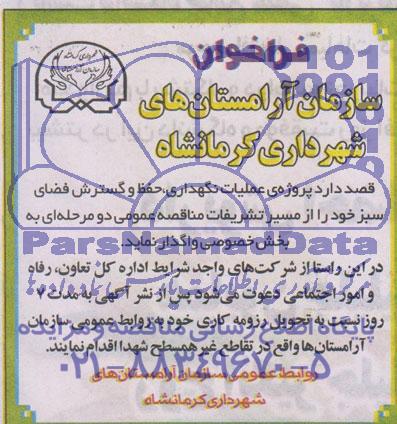 فراخوان
سازمان آرامستان‌های
شهرداری کرمانشاه
قصد دارد پروژه‌ی عملیات نگهداری، حفظ و گسترش فضای
سبز خود را از مسیر تشریفات مناقصه عمومی دو مرحله‌ای به
بخش خصوصی واگذار نماید.
در این راستا از شرکت‌های واجد شرایط اداره کل تعاون، رفاه
و امور اجتماعی دعوت می‌شود پس از نشر آگهی به مدت ۷
روز نسبت به تحویل رزومه کاری خود به روابط عمومی سازمان
آرامستان‌ها واقع در تقاطع غیر همسطح شهدا اقدام نمایند.
روابط عمومی سازمان آرامستان‌های
شهرداری کرمانشاه
ParsNamadData
پایگاه اطلاع رسانی مناقصه و مزایده
۰۲۱-۸۸۳۴۹۶۷۰-۵